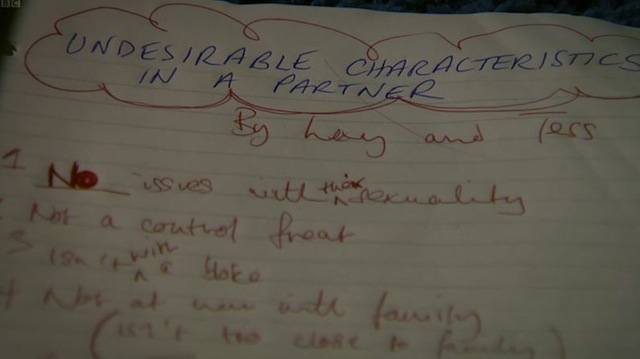 BBC
UNDESIRABLE CHARACTERISTICS
IN A PARTNER
By and Tess
1 No issues with their sexuality
Not a control freak
3 Isn't with a bloke
4 Not at war with family
(isn't too close to family)